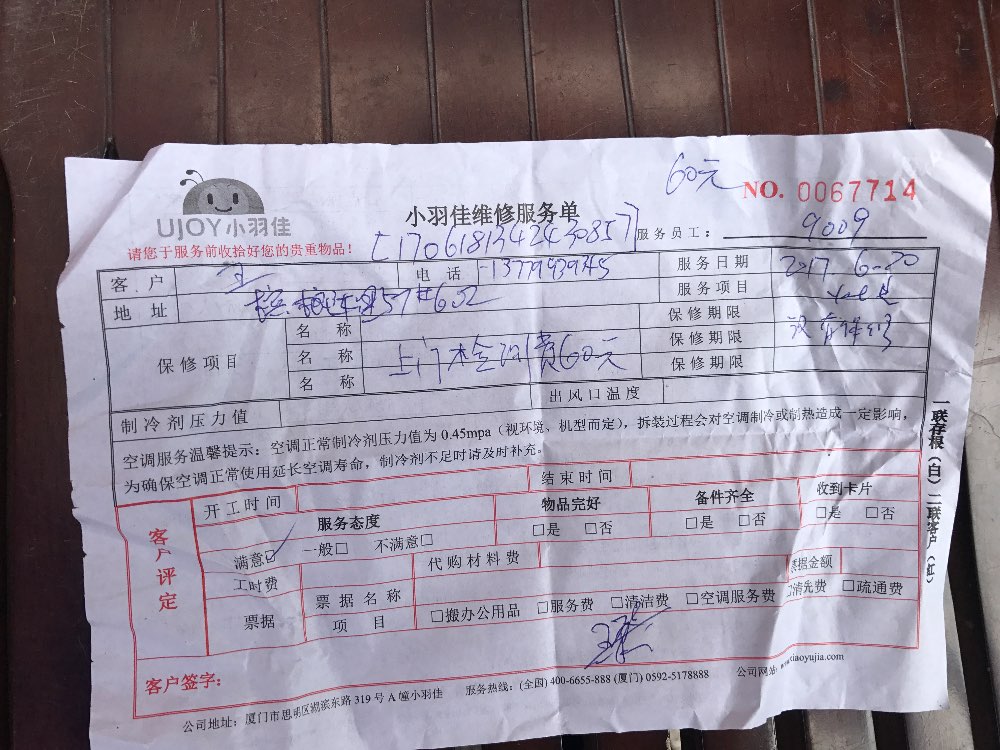 60元
NO. 0067714
UJOY小羽佳
小羽佳维修服务单
请您于服务前收拾好您的贵重物品!
[170618134242430857]
服务员工: 9009
客户 王 电话 服务日期 2017. 6-20
地址 602 服务项目
保修项目 名称 保修期限
名称 上门检测费60元 保修期限
名称 保修期限
制冷剂压力值 出风口温度
空调服务温馨提示:空调正常制冷剂压力值为 0.45mpa(视环境、机型而定),拆装过程会对空调制冷或制热造成一定影响,
为确保空调正常使用延长空调寿命,制冷剂不足时请及时补充。
一联存根(白)二联客户(红)
客户评定
开工时间 结束时间
服务态度 物品完好 备件齐全 收到卡片
满意☑ 一般□ 不满意□ □是 □否 □是 □否 □是 □否
工时费 代购材料费
票据 票据名称 票据金额
项目 □搬办公用品 □服务费 □清洁费 □空调服务费 □清光费 □疏通费
客户签字:
公司地址:厦门市思明区湖滨东路 319 号 A 幢小羽佳 服务热线:(全国) 400-6655-888 (厦门) 0592-5178888 公司网站:www.xiaoyujia.com